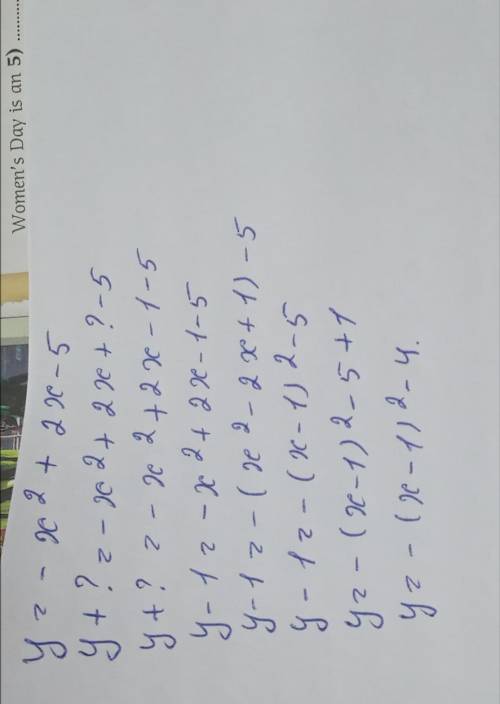 Women's Day is an 5) ..........
y = - x² + 2x - 5
y + ? = - x² + 2x + ? - 5
y + ? = - x² + 2x - 1 - 5
y - 1 = - x² + 2x - 1 - 5
y - 1 = - (x² - 2x + 1) - 5
y - 1 = - (x - 1)² - 5
y = - (x - 1)² - 5 + 1
y = - (x - 1)² - 4.